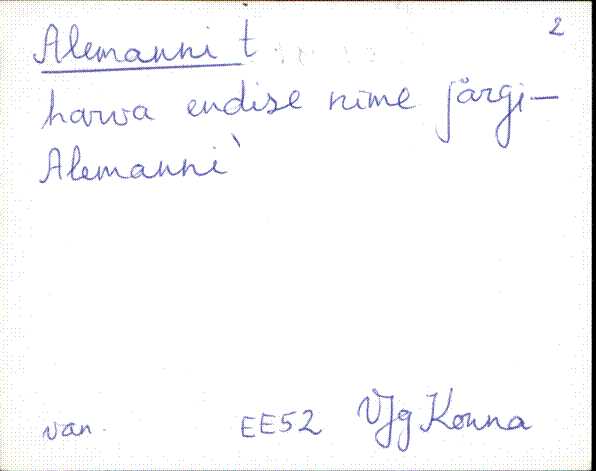 2
Alemanni t
harva endise nime järgi—
Alemanni`
van. EE52 VJg Konna